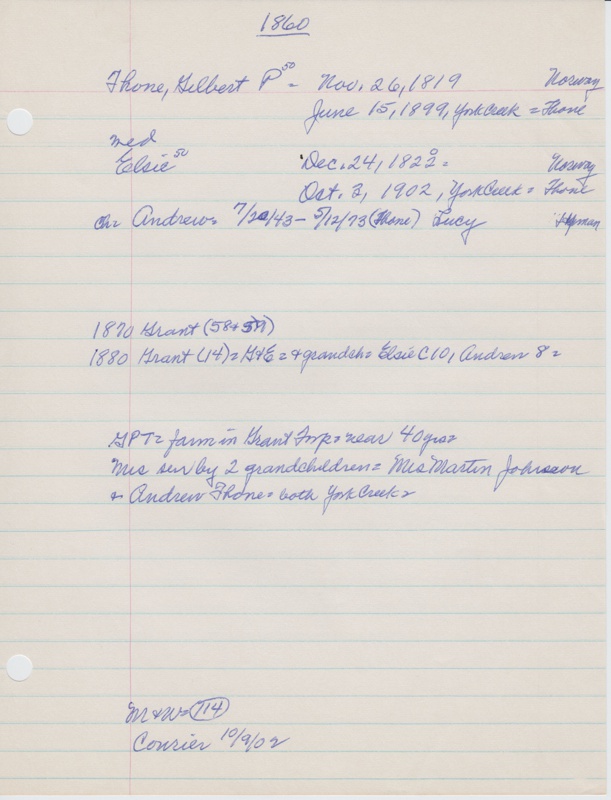 1860
Thone, Gilbert P 50 = Nov. 26, 1819 Norway
June 15, 1899, York Creek = Thone
med
Elsie 50 Dec. 24, 1822 = Norway
Oct. 3, 1902, York Creek = Thone
ch= Andrew= 7/20/43 - 5/12/73 (Thone) Lucy
1870 Grant (58+57)
1880 Grant (14) = G+E = + grandch= Elsie C 10, Andrew 8 =
GPT = farm in Grant Twp = near 40 yrs=
Mrs sur by 2 grandchildren = Mrs Martin Johnson
+ Andrew Thone = both York Creek =
M+W= 114
Courier 10/9/02